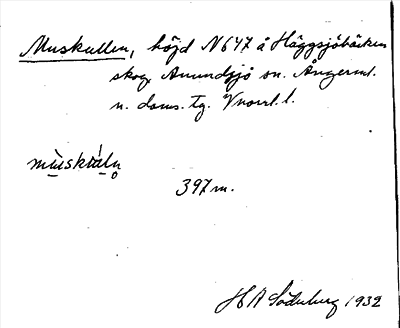 Muskullen, höjd N 647 å Häggsjöbäcken
skog Anundsjö sn. Ångerml.
n. doms. tg. Vnorrl. l.
397 m.
H A Söderberg 1932